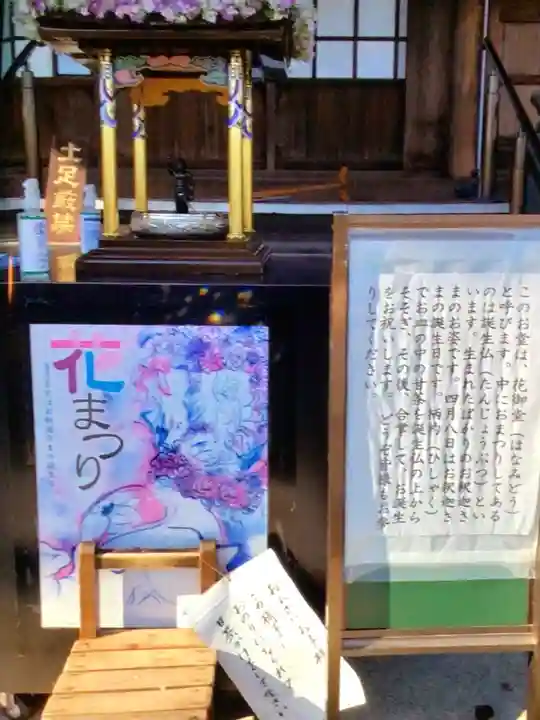 土足厳禁
花まつり
このお堂は、花御堂（はなみどう）
と呼びます。中におまつりしてある
のは誕生仏（たんじょうぶつ）とい
います。生まれたばかりのお釈迦さ
まのお姿です。四月八日はお釈迦さ
まの誕生日です。柄杓（ひしゃく）
でお皿の中の甘茶を誕生仏の上から
そそぎ、その後、合掌して、お誕生
をお祝いします。どうぞ皆様もお参
りしてください。